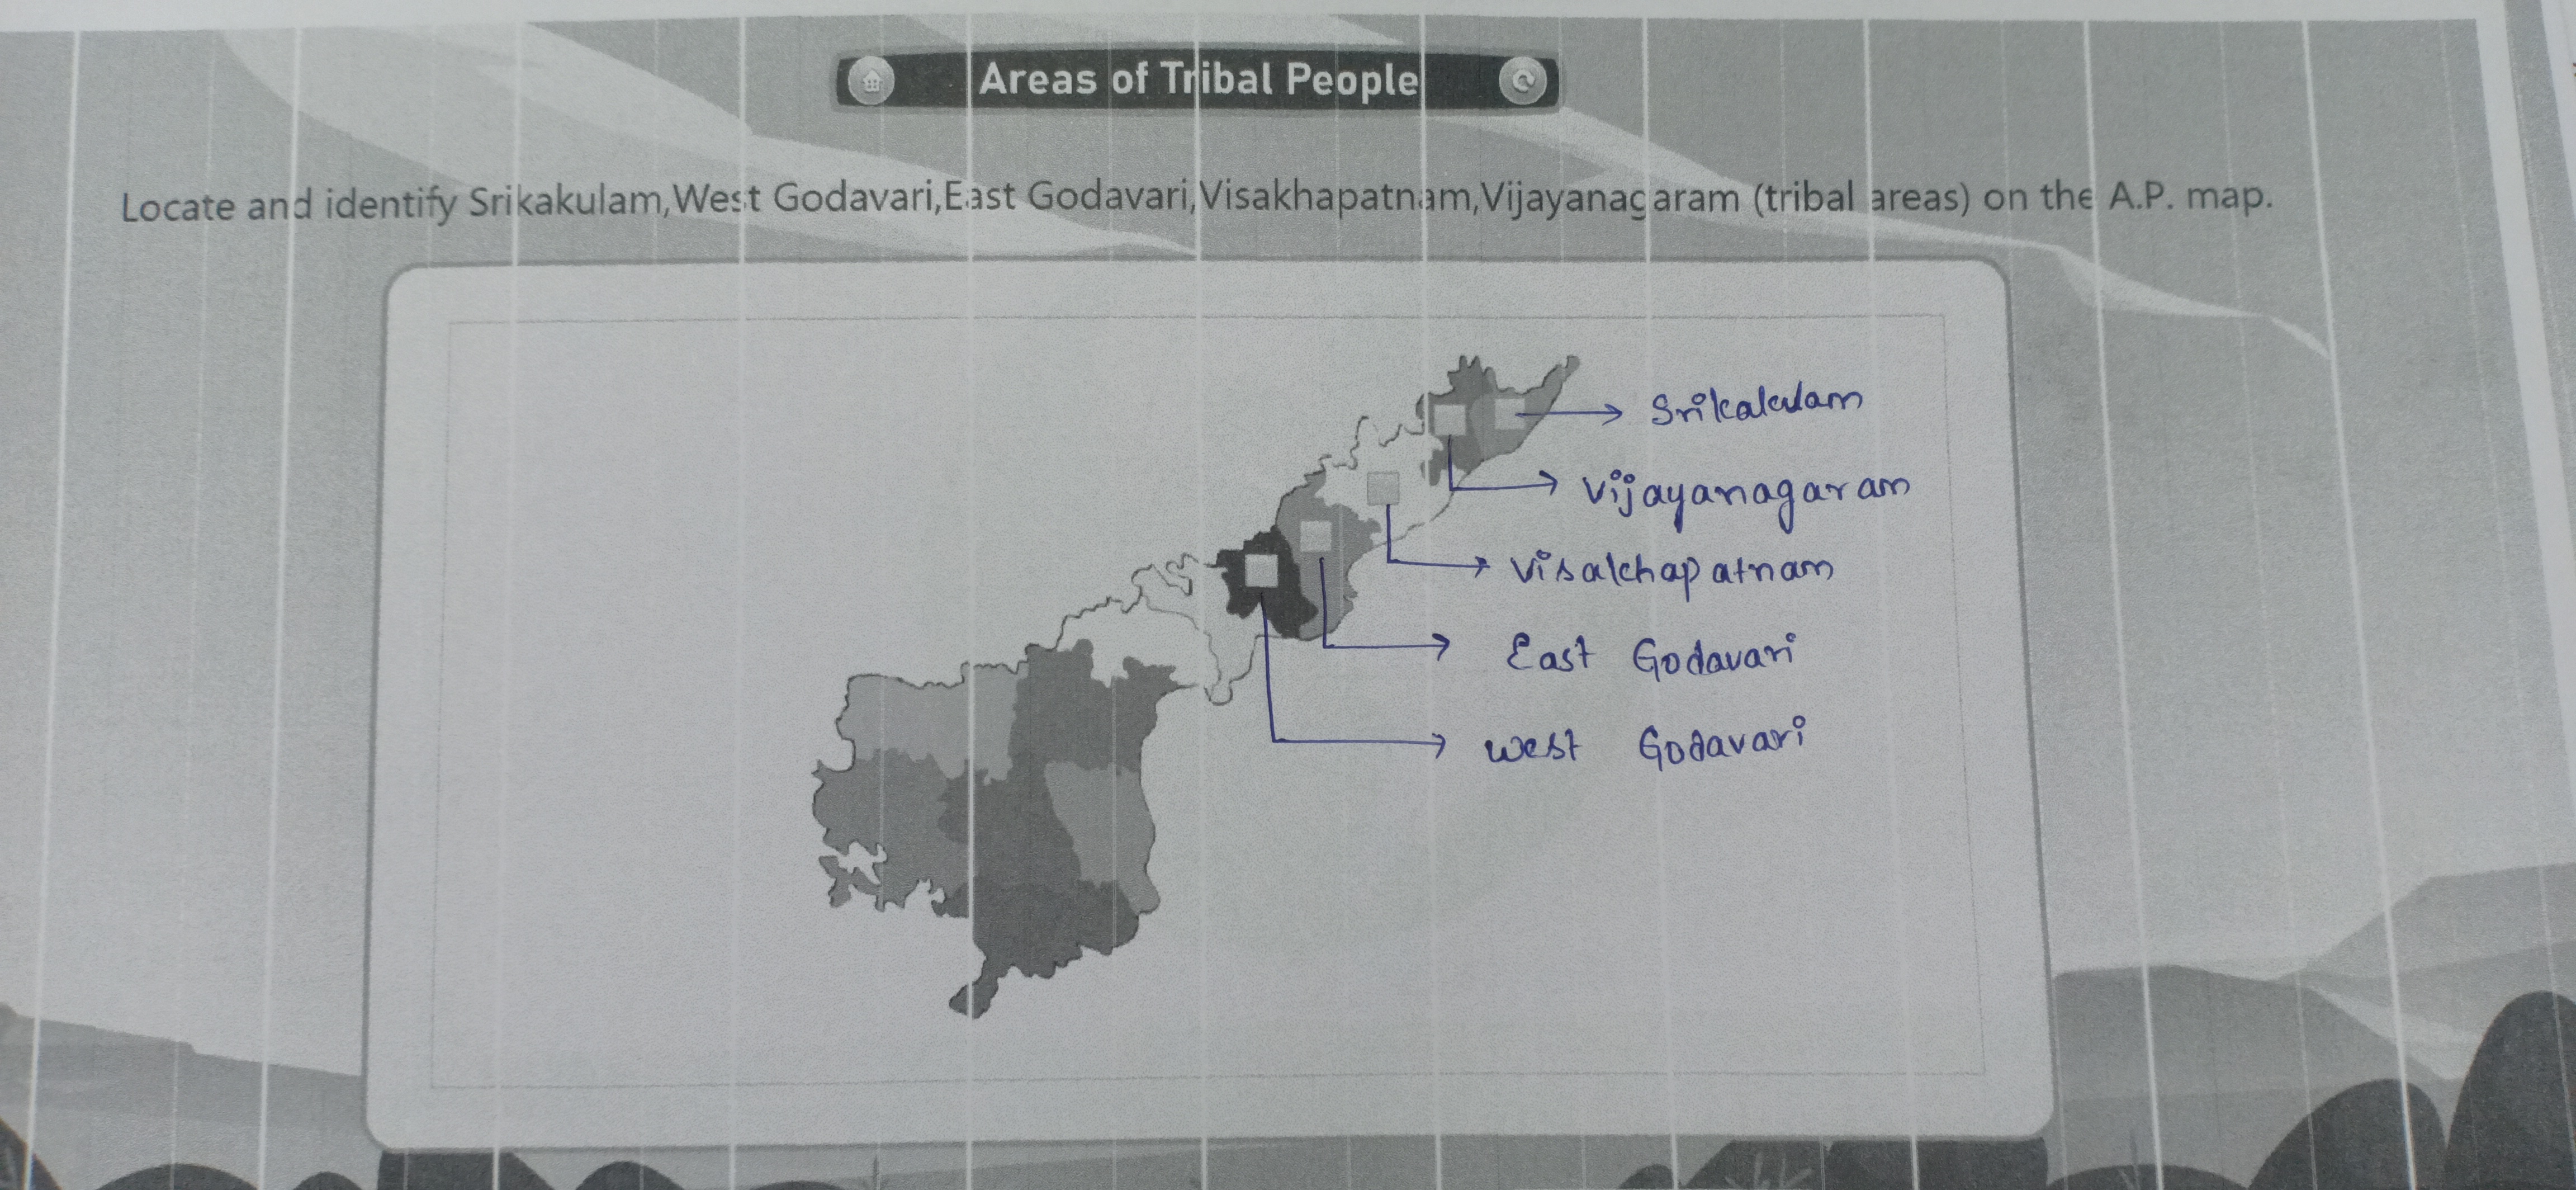 Areas of Tribal People
Locate and identify Srikakulam,West Godavari,East Godavari,Visakhapatnam,Vijayanagaram (tribal areas) on the A.P. map.
Srikakulam
Vijayanagaram
Visakhapatnam
East Godavari
West Godavari